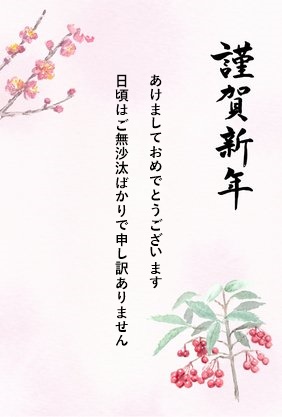 謹賀新年
あけましておめでとうございます
日頃はご無沙汰ばかりで申し訳ありません